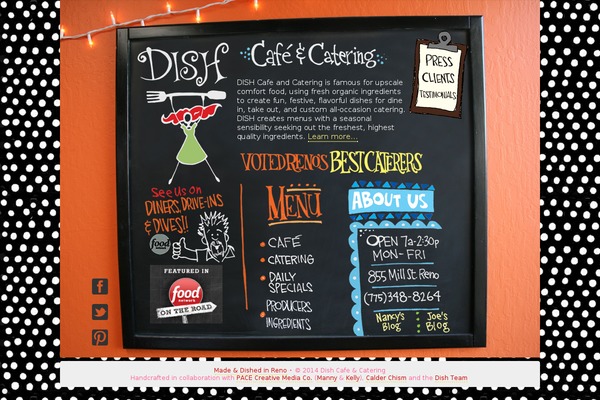 DISH
Café & Catering
PRESS
CLIENTS
TESTIMONIALS
DISH Cafe and Catering is famous for upscale
comfort food, using fresh organic ingredients
to create fun, festive, flavorful dishes for dine
in, take out, and custom all-occasion catering.
DISH creates menus with a seasonal
sensibility seeking out the freshest, highest
quality ingredients. Learn more...
VOTED RENO'S BEST CATERERS
See us on
DINERS, DRIVE-INS
& DIVES!!
food
FEATURED IN
food
network
ON THE ROAD
MENU
CAFÉ
CATERING
DAILY
SPECIALS
PRODUCERS
INGREDIENTS
ABOUT US
OPEN 7a-2:30p
MON-FRI
855 Mill St Reno
(775)348-8264
Nancy's
Blog
Joe's
Blog
Made & Dished in Reno • © 2014 Dish Cafe & Catering
Handcrafted in collaboration with PACE Creative Media Co. (Manny & Kelly), Calder Chism and the Dish Team